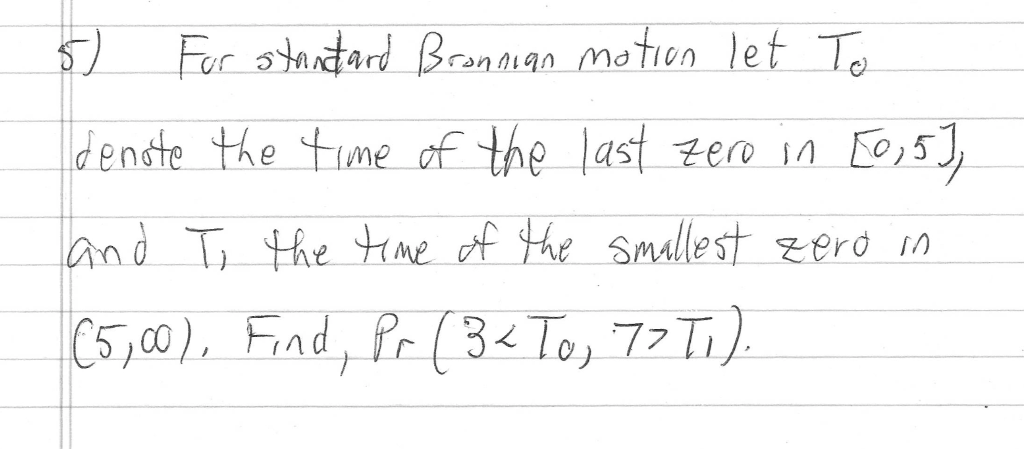 5) For standard Brownian motion let T₀
denote the time of the last zero in [0,5],
and T₁ the time of the smallest zero in
(5,∞). Find, Pr (3<T₀, 7>T₁).